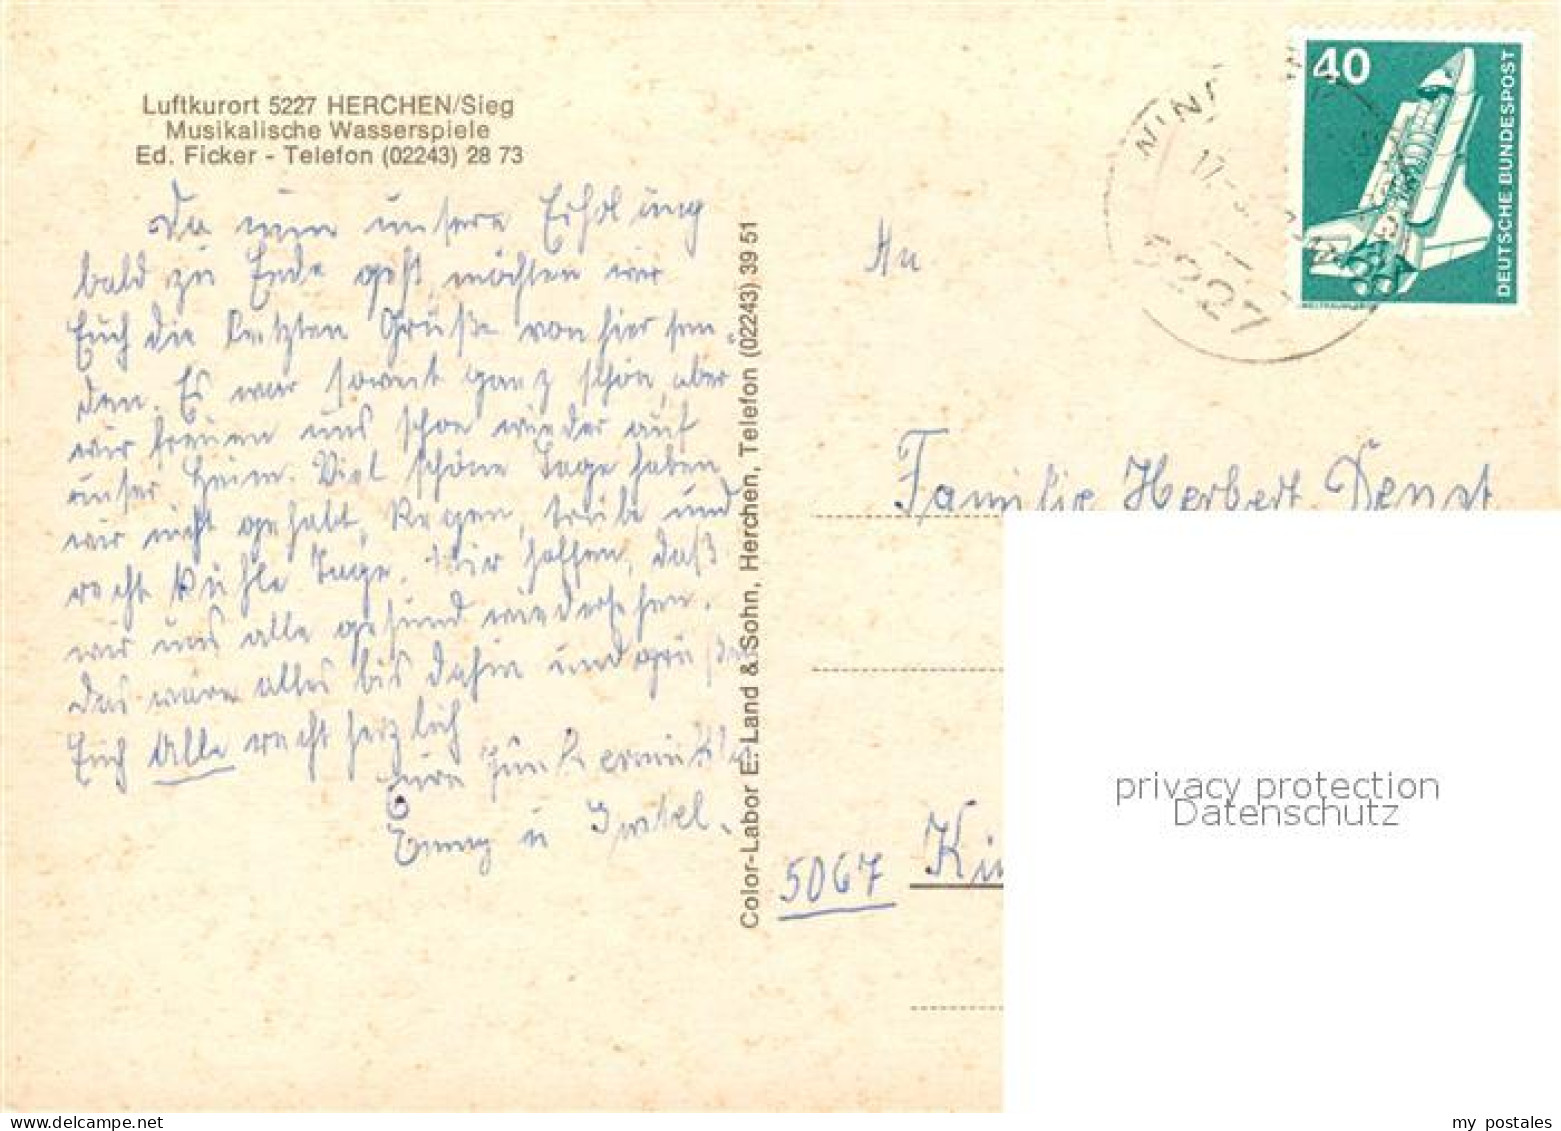 Luftkurort 5227 HERCHEN/Sieg
Musikalische Wasserspiele
Ed. Ficker - Telefon (02243) 28 73
Da nun unsere Erholung
bald zu Ende geht, möchten wir
Euch die letzten Grüße von hier sen
den. Es war soweit ganz schön, aber
wir freuen uns schon wieder auf
unser Heim. Viel schöne Tage haben
wir nicht gehabt, Regen, trübe und
recht kühle Tage. Wir hoffen, daß
wir uns alle gesund wiedersehen.
Das wäre alles bis dahin und grüßen
Euch Alle recht herzlich
Eure
Emmy u
Color-Labor E. Land & Sohn, Herchen, Telefon (02243) 39 51
40
DEUTSCHE BUNDESPOST
5227
An
Familie Herbert Denst
5067
privacy protection
Datenschutz
my postales